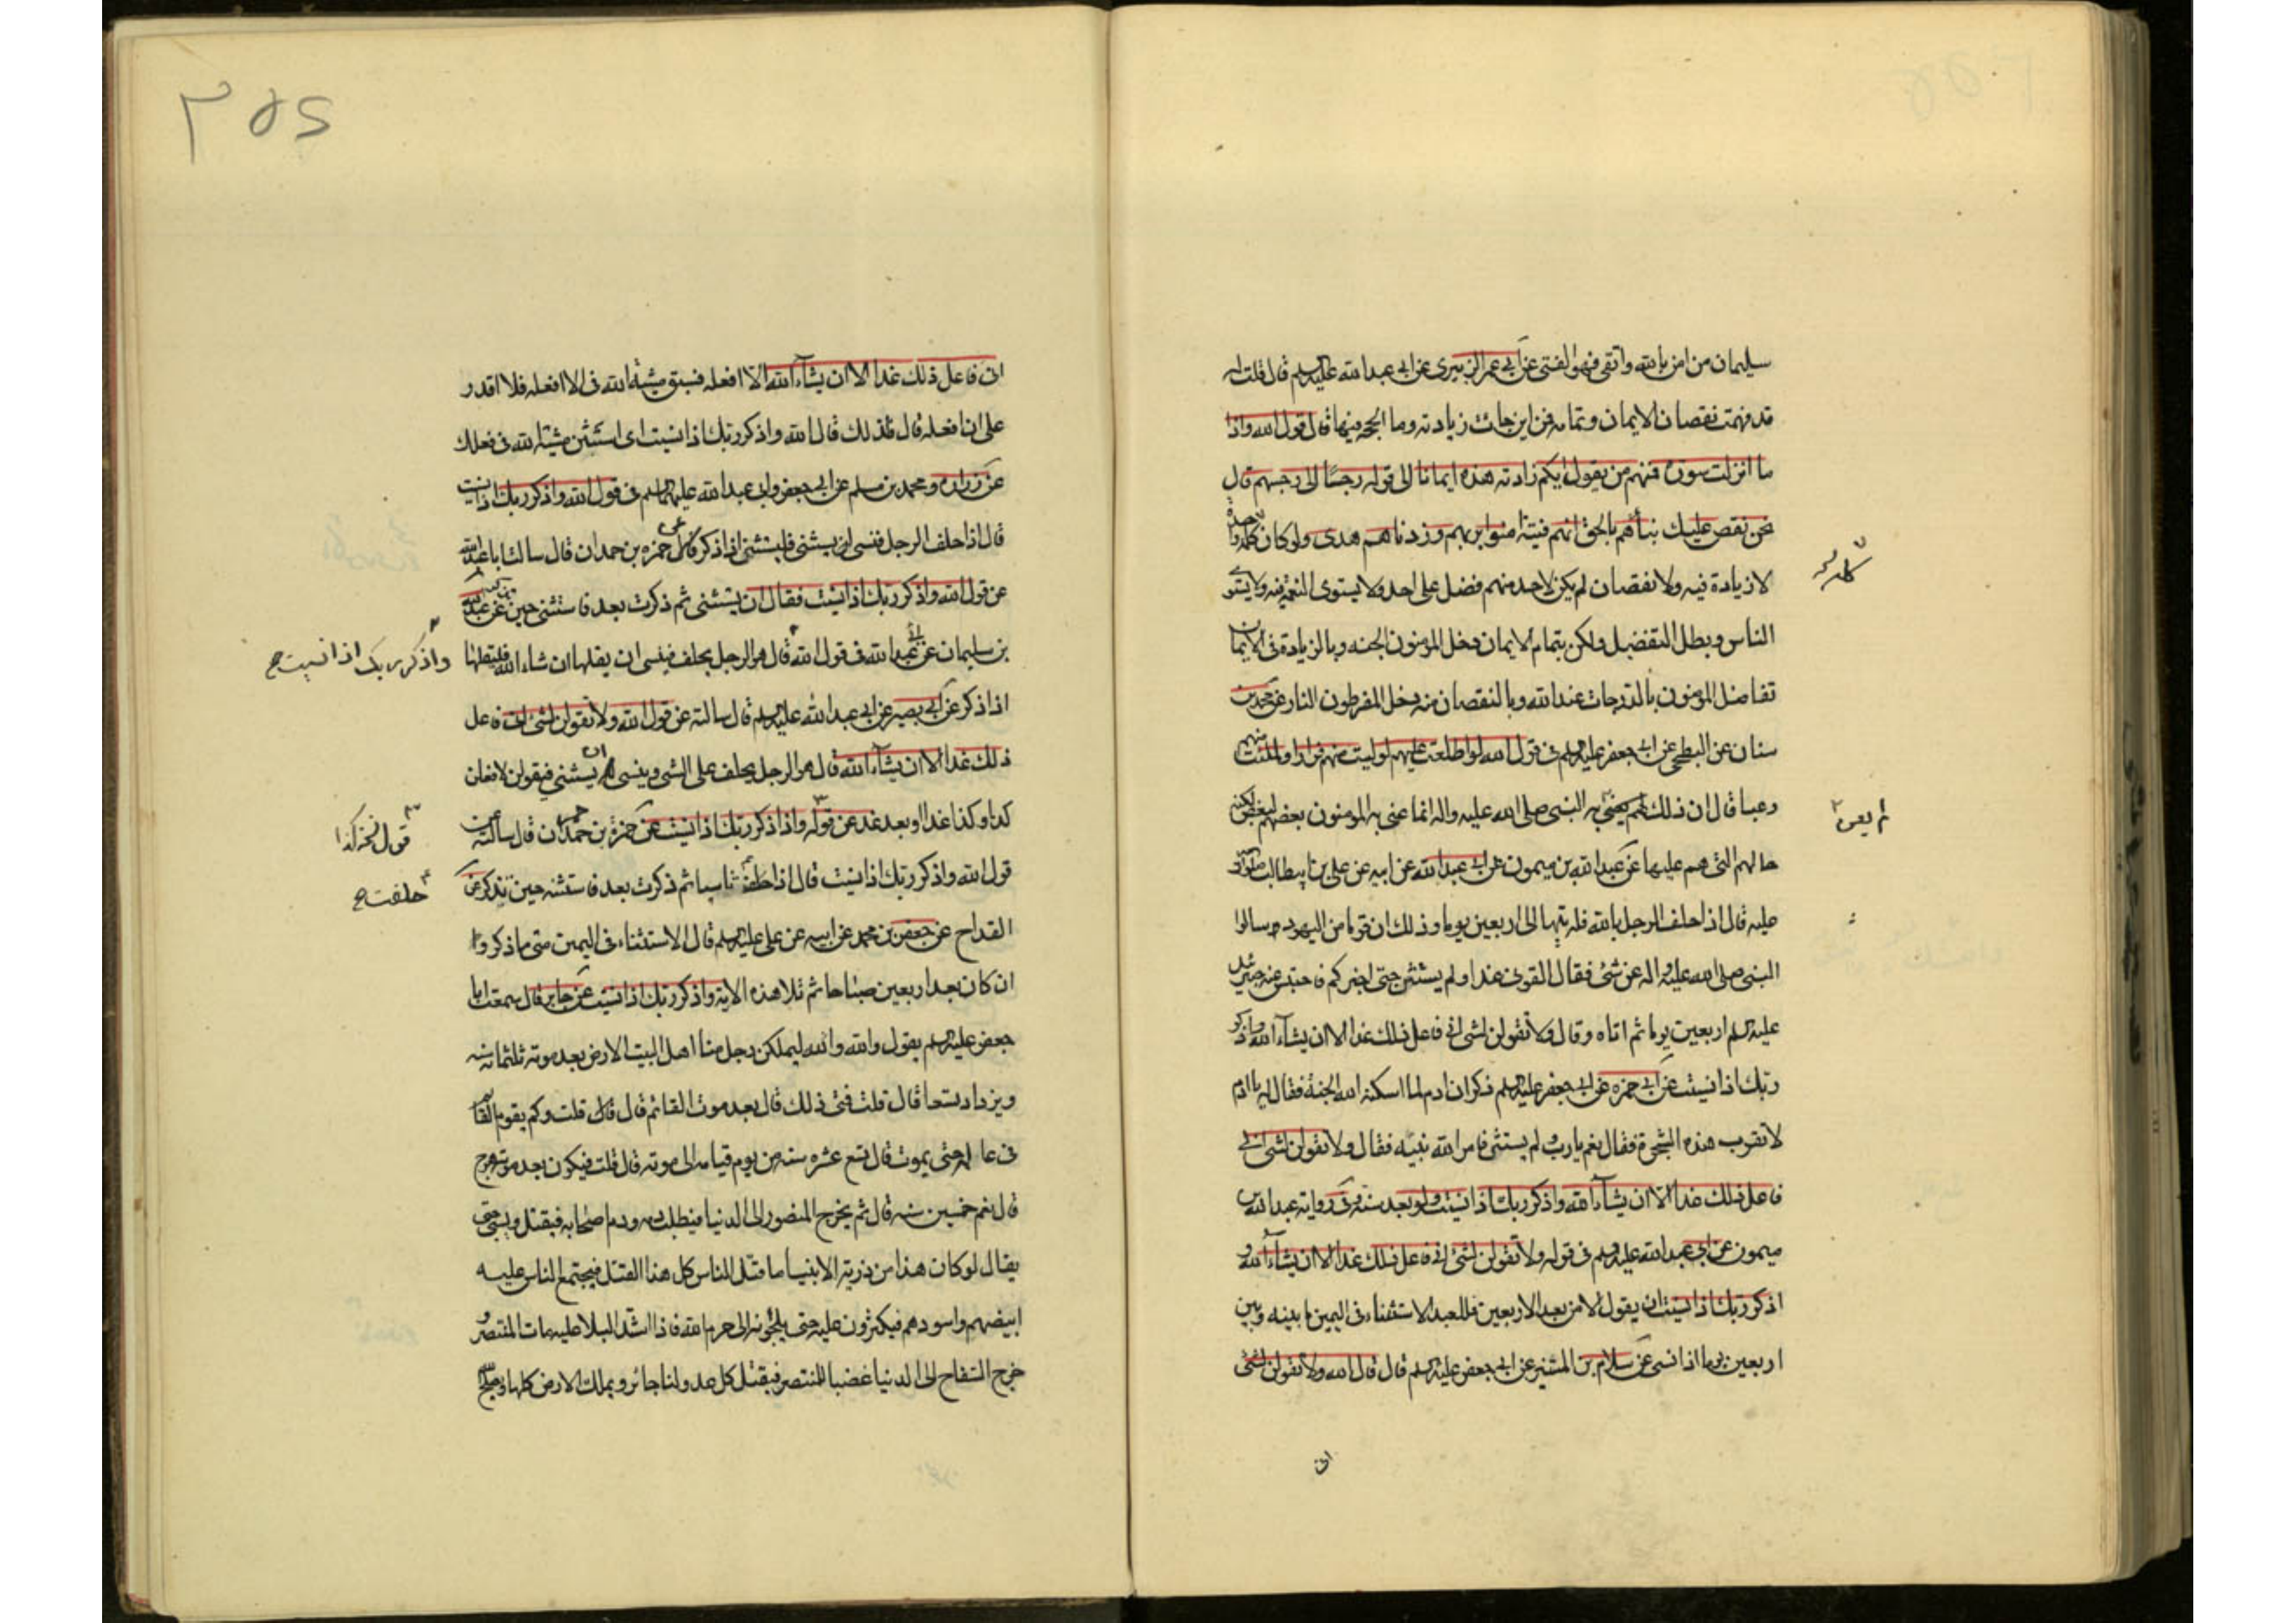 سليمان من امن بالله واتقى فهو الفتى عن ابى عمر الزبيرى عن ابى عبد الله عليه السلم قال قلت له
قد فهمت نقصان الايمان وتمامه فمن اين جائت زيادته وما الحجة فيها قال قول الله واذا
ما انزلت سورة فمنهم من يقول ايكم زادته هذه ايمانا الى قوله رجسًا الى رجسهم قال
نحن نقص عليك نبأهم بالحق انهم فتية امنوا بربهم وزدناهم هدى ولو كان كله واحدة
لا زيادة فيه ولا نقصان لم يكن لاحد منهم فضل على احد ولا يستوى النعمة فيه ولا يستوى
الناس وبطل التفضيل ولكن بتمام الايمان دخل المؤمنون الجنه وبالزيادة فى الايمان
تفاضل المؤمنون بالدرجات عند الله وبالنقصان منه دخل المفرطون النار عن محمد بن
سنان عن البطحى عن ابى جعفر عليه السلم فى قول الله لو اطلعت عليهم لوليت منهم فرارا ولملئت منهم
رعبا قال ان ذلك لم يعنى به النبى صلى الله عليه واله انما عنى به المؤمنون بعضهم لبعض لكنه
حالهم التى هم عليها عن عبد الله بن ميمون عن ابى عبد الله عن ابيه عن على بن ابيطالب صلوات الله
عليه قال اذا حلف الرجل بالله فله ثنيها الى اربعين يوما وذلك ان قوما من اليهود سالوا
النبى صلى الله عليه واله عن شئ فقال القونى غدا ولم يستثن حتى اخبركم فاحتبس عنه جبرئيل
عليه السلم اربعين يوما ثم اتاه وقال ولا تقولن لشئ انى فاعل ذلك غدا الا ان يشآء الله واذكر
ربك اذا نسيت عن ابى حمزه عن ابى جعفر عليه السلم ذكر ان ادم لما اسكنه الله الجنة فقال له يا ادم
لا تقرب هذه الشجرة فقال نعم يا رب ولم يستثنى فامر الله نبيه فقال ولا تقولن لشئ انى
فاعل ذلك غدا الا ان يشآء الله واذكر ربك اذا نسيت ولو بعد سنة وفى رواية عبد الله بن
ميمون عن ابى عبد الله عليه السلم فى قوله ولا تقولن لشئ انى فاعل ذلك غدا الا ان يشآء الله و
اذكر ربك اذا نسيت ان يقول الا من بعد الاربعين فللعبد الاستثناء فى اليمين ما بينه وبين
اربعين يوما اذا نسى عن سلام بن المستنير عن ابى جعفر عليه السلم قال قال الله ولا تقولن لشئ
انى
لم يعن
٢٥٥
انى فاعل ذلك غدا الا ان يشآء الله الا افعله فسبق مشية الله فى الا افعله فلا اقدر
على ان افعله قال فلذلك قال الله واذكر ربك اذا نسيت اى استثن مشية الله فى فعلك
عن زراره ومحمد بن مسلم عن ابى جعفر وابى عبد الله عليهما السلم فى قول الله واذكر ربك اذا نسيت
قال اذا حلف الرجل فنسى ان يستثنى فليستثنى اذا ذكر عن حمزه بن حمدان قال سالت ابا عبد الله
عن قول الله واذكر ربك اذا نسيت فقال ان يستثنى ثم ذكرت بعد فاستثنى حين عن عبد الله
بن سليمان عن ابى عبد الله فى قول الله قال هو الرجل يحلف فينسى ان يقلها ان شاء الله فليقلها
واذكر ربك اذا نسيت ح
اذا ذكر عن ابى بصير عن ابى عبد الله عليه السلم قال سالته عن قول الله ولا تقولن لشئ انى فاعل
ذلك غدا الا ان يشآء الله قال هو الرجل يحلف على الشئ وينسى ان يستثنى فيقولن لافعلن
كذا وكذا غدا او بعد غد عن قوله واذكر ربك اذا نسيت عن حمزة بن حمدان قال سالته عن
قول الله واذكر ربك اذا نسيت قال اذا حلفت ناسيا ثم ذكرت بعد فاستثنه حين تذكر عن
حلفت ح
القداح عن جعفر بن محمد عن ابيه عن على عليه السلم قال الاستثناء فى اليمين متى ما ذكر و
ان كان بعد اربعين صباحا ثم تلا هذه الاية واذكر ربك اذا نسيت عن جابر قال سمعت ابا
جعفر عليه السلم يقول والله والله ليملكن رجل منا اهل البيت الارض بعد موته ثلثمائة سنه
ويزداد تسعا قال قلت فمتى ذلك قال بعد موت القائم قال قلت وكم يقوم القائم
فى عالمه حتى يموت قال تسع عشره سنه من يوم قيامه الى موته قال قلت فيكون بعد موته هرج
قال نعم خمسين سنه قال ثم يخرج المنصور الى الدنيا فيطلب دمه ودم اصحابه فيقتل ويسبى حتى
يقال لو كان هذا من ذرية الانبيا ما قتل الناس كل هذا القتل فيجتمع الناس عليه
ابيضهم واسودهم فيكثرون عليه حتى يلجؤنه الى حرم الله فاذا اشتد البلا عليه مات المنتصر و
خرج السفاح الى الدنيا غضبا للمنتصر فيقتل كل عدو لنا جائر ويملك الارض كلها ويصلح